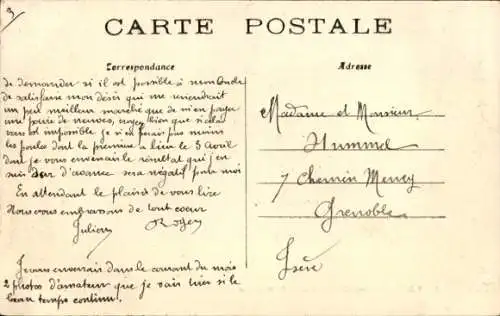 3
CARTE POSTALE
Correspondance
Adresse
de demander si il est possible à mon Oncle
de satisfaire mon désir qui me reviendrait
un peu meilleur marché que de m'en payer
une paire de neuves, croyez bien que si cela
vous est impossible je n'en ferais pas moins
les poules dont la première a lieu le 3 Avril
dont je vous enverrai le résultat qui j'en
suis sûr d'avance sera négatif pour moi
En attendant le plaisir de vous lire
Nous vous embrassons de tout coeur
Julien Roger
Je vous enverrais dans le courant du mois
2 photos d'amateur que je vais tirer si le
beau temps continue.
Madame et Monsieur
Hummel
7 Chemin Meney
Grenoble
Isère